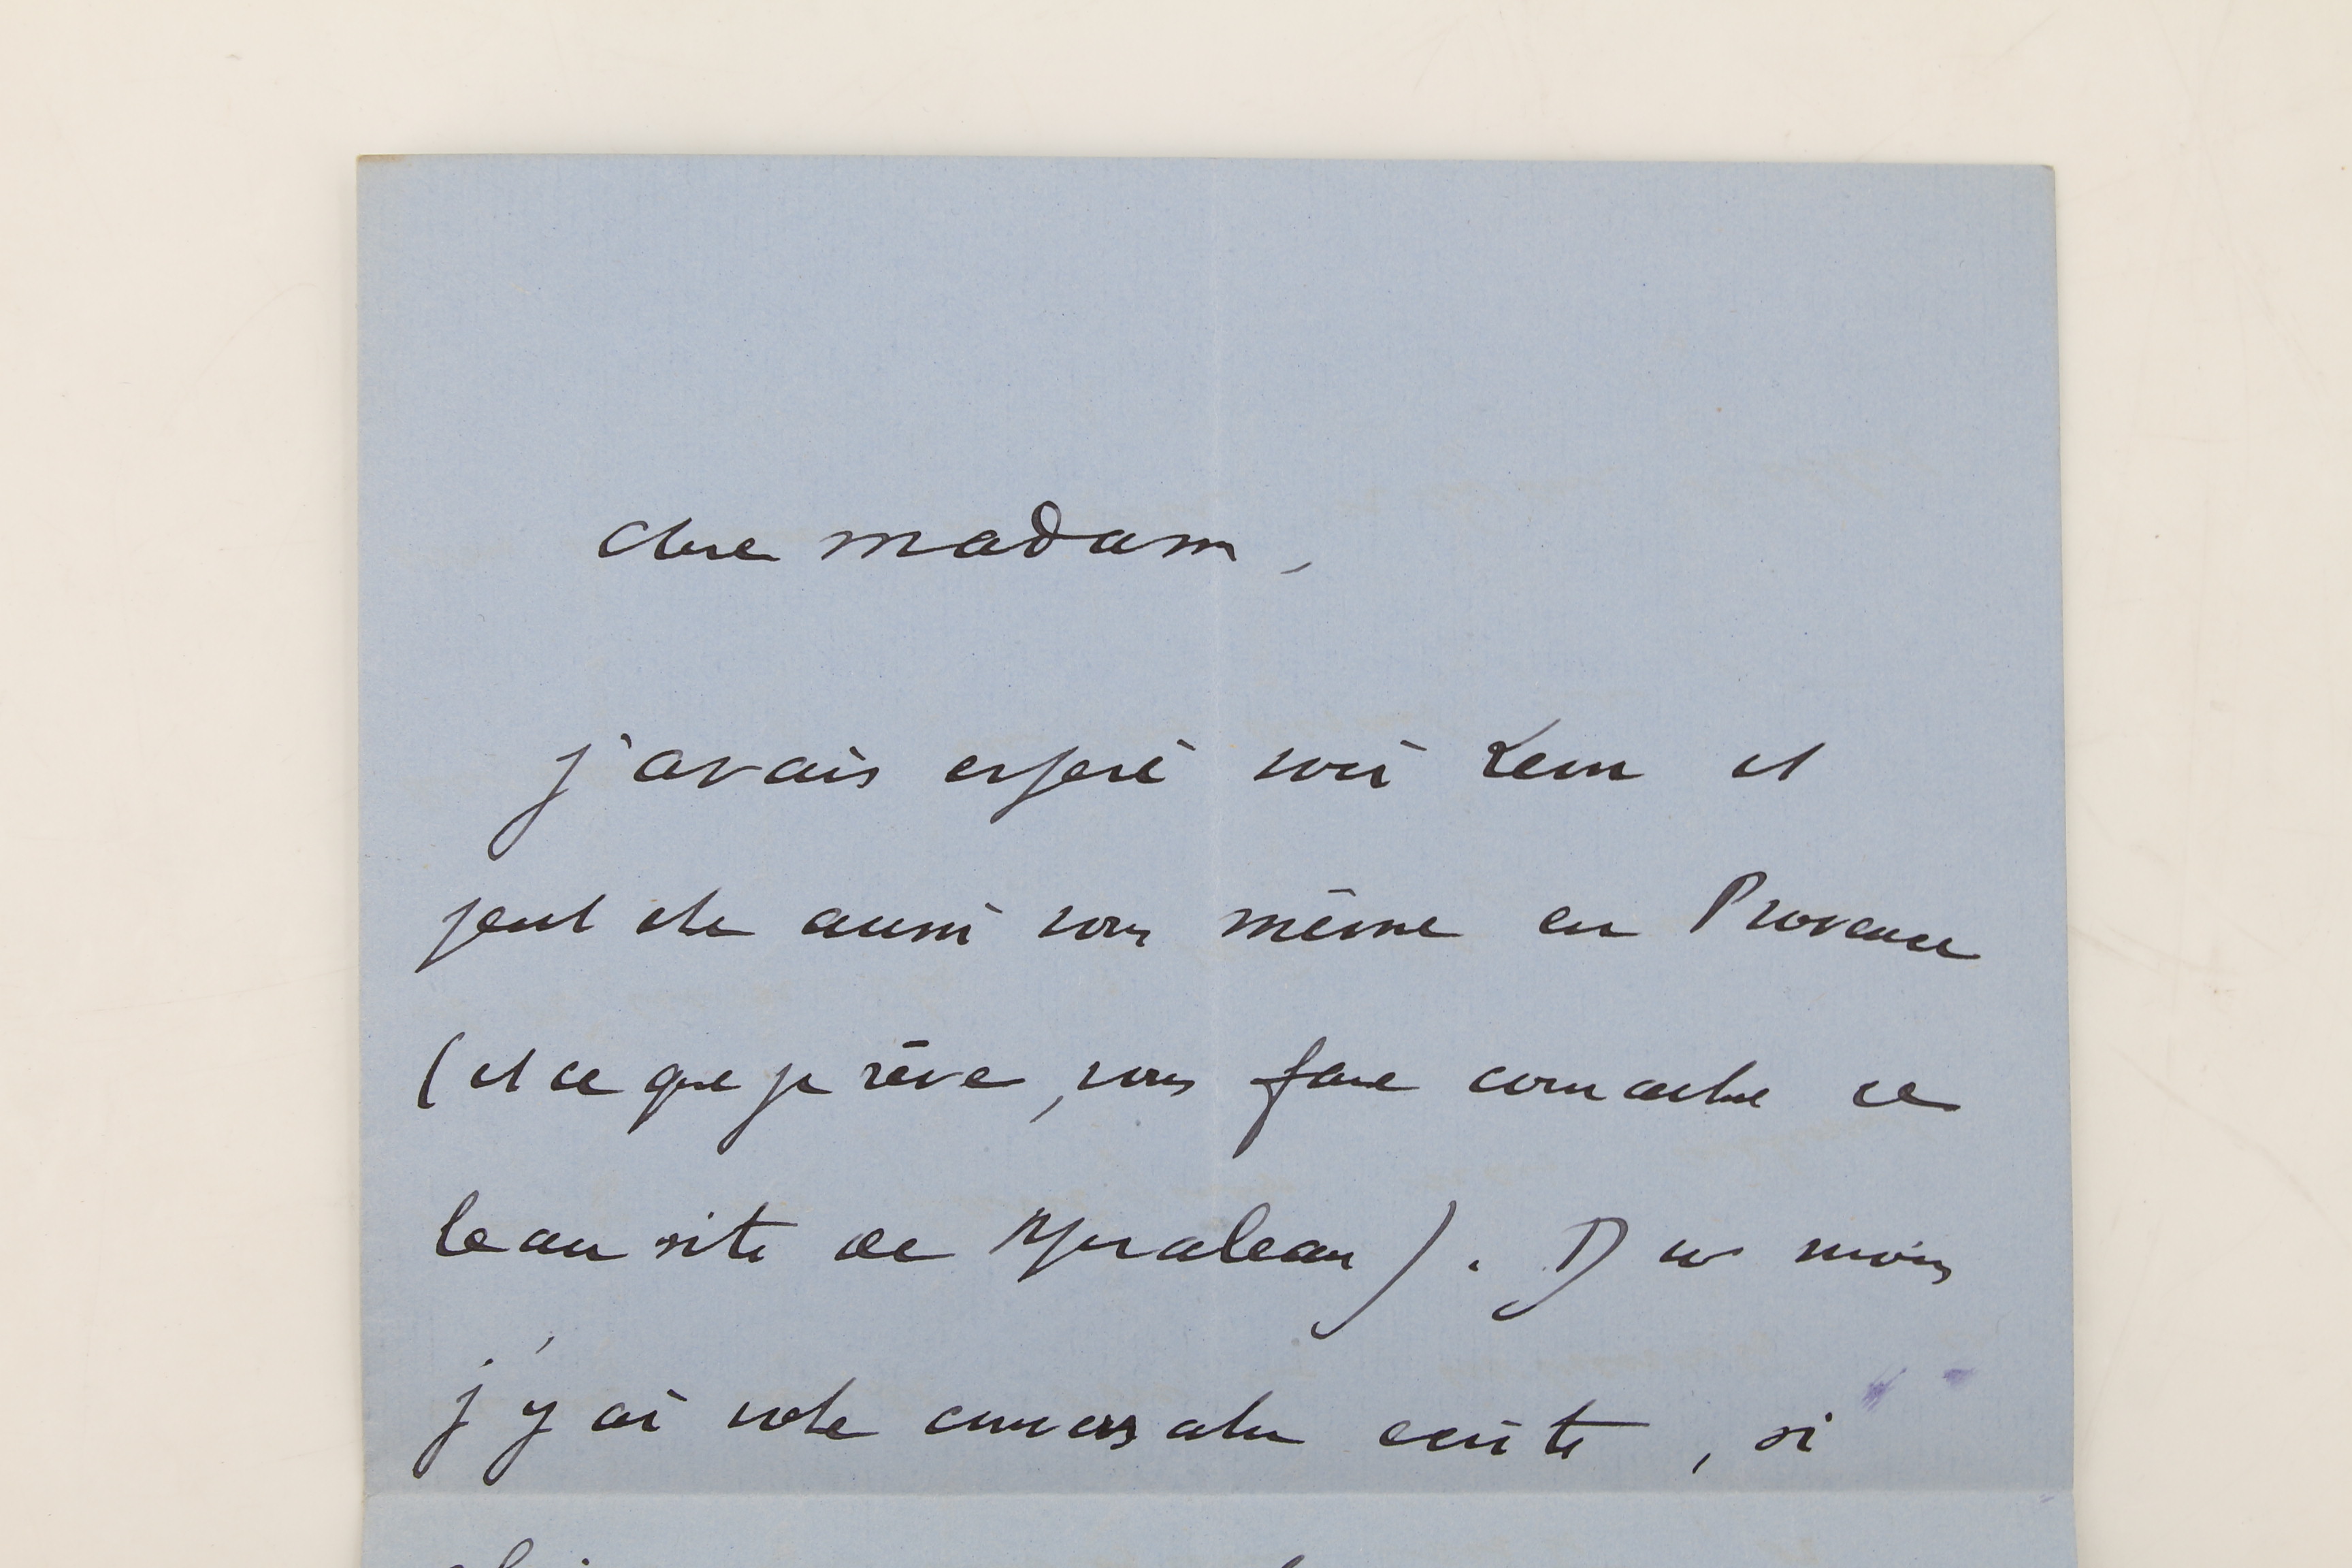 Chere madame,
j'avais esperé voir Rem et
peut etre aussi vous même en Provence
(et ce que je rêve, vous faire connaitre ce
beau site de Mirabeau). Du moins
j'y ai votre conversation ecrite, si